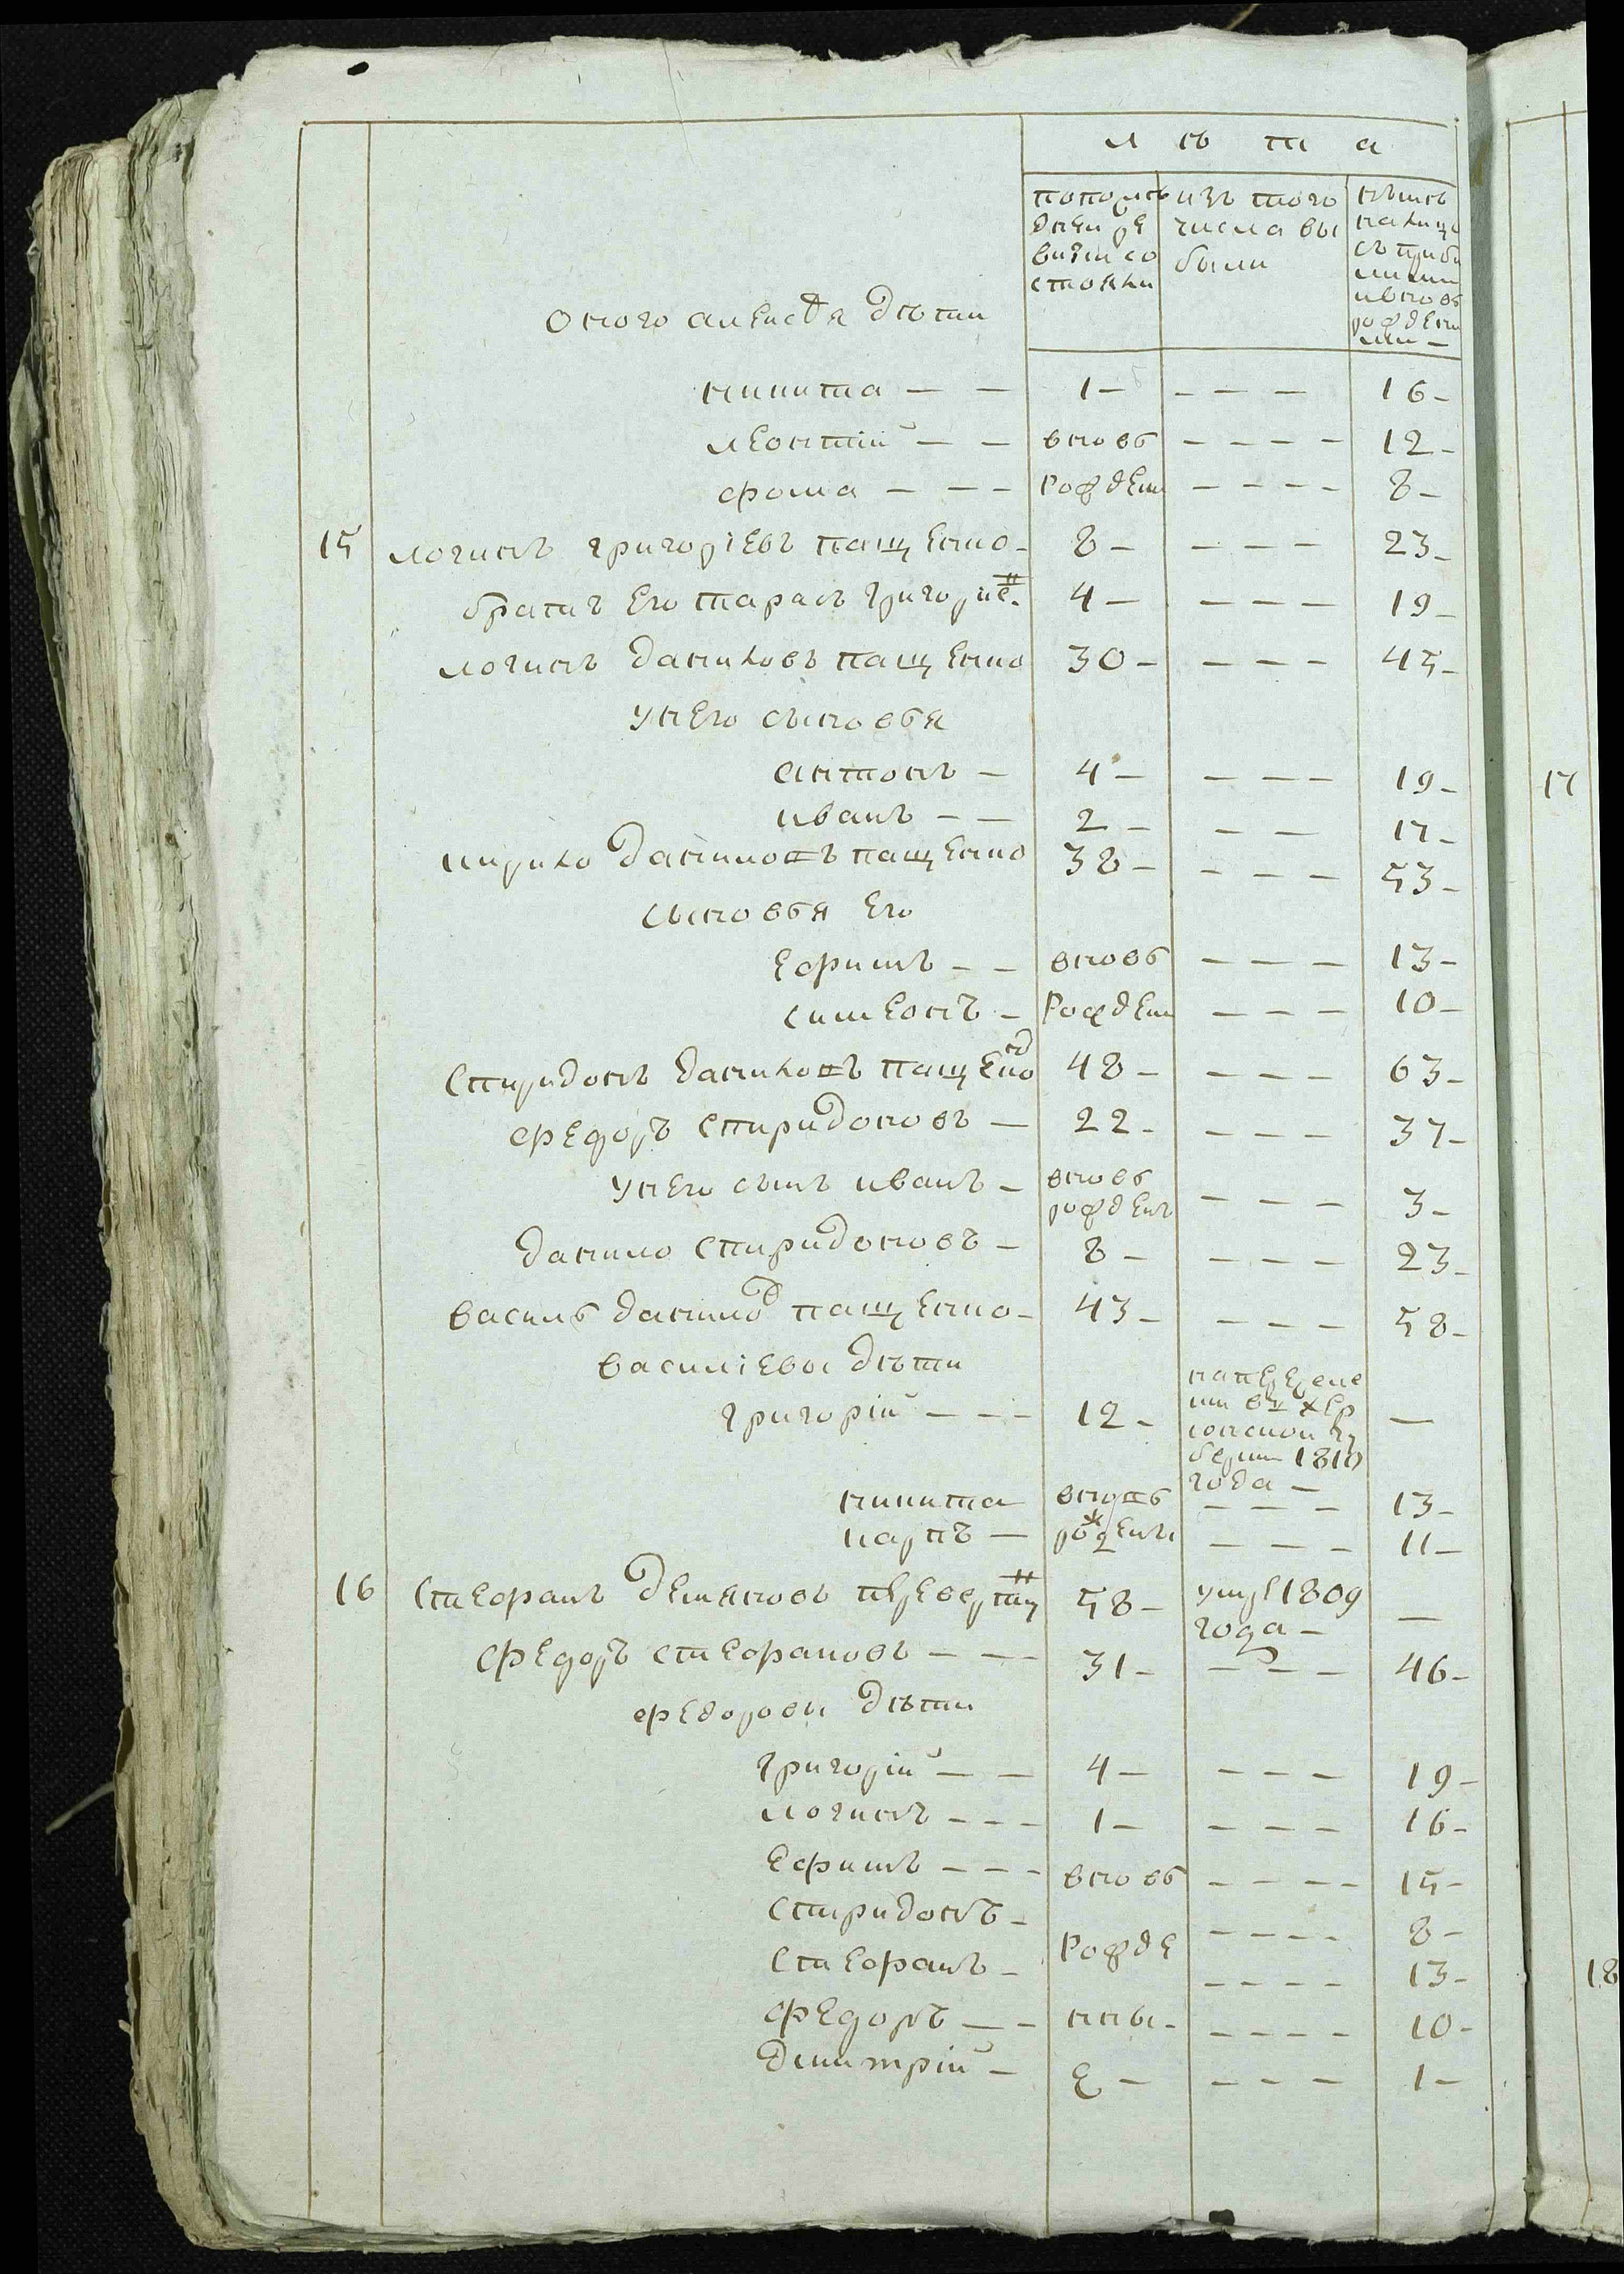 лѣта
пополѣ
дней ре
визіи со
стояли
изъ того
числа вы
были
нынѣ
налице
съ прибы
лыми
и вновь
рожденн
ми —
оного алексѣя дѣти
никита — — 1 — — — — 16 —
леонтій — — вновь — — — — 12 —
фома — — — рожден — — — — 8 —
15 логинъ григоріевъ пащенко — 8 — — — — 23 —
братъ его тарасъ григорие. 4 — — — — 19 —
логинъ даниловъ пащенко 30 — — — — 45 —
у него сыновья
антонъ — 4 — — — — 19 —
иванъ — — 2 — — — 17 —
кирило даниловъ пащенко 38 — — — — 53 —
сыновья его
ефимъ — — вновь — — — 13 —
симеонъ — рожден — — — 10 —
спиридонъ даниловъ пащенко 48 — — — — 63 —
федоръ спиридоновъ — 22 — — — — 37 —
у него сынъ иванъ — вновь
рожденъ — — — 3 —
данило спиридоновъ — 8 — — — — 23 —
василь данилов пащенко — 43 — — — — 58 —
василіевы дѣти
григорій — — — 12 — на переселе
нии въ хер
сонской гу
берни 1810
года — —
никита вновь — — — 13 —
карпъ — рожденъ — — — 11 —
16 стефанъ демяновъ переверт 58 — умре 1809
года — —
федоръ стефановъ — — — 31 — — — — 46 —
федоровы дѣти
григорій — — 4 — — — — 19 —
логинъ — — — 1 — — — — 16 —
ефимъ — — — вновь — — — — 15 —
спиридонъ — — — — — 8 —
стефанъ — рожде — — — — 13 —
федоръ — — нны — — — — — 10 —
димитрій — е — — — — 1 —
17
18